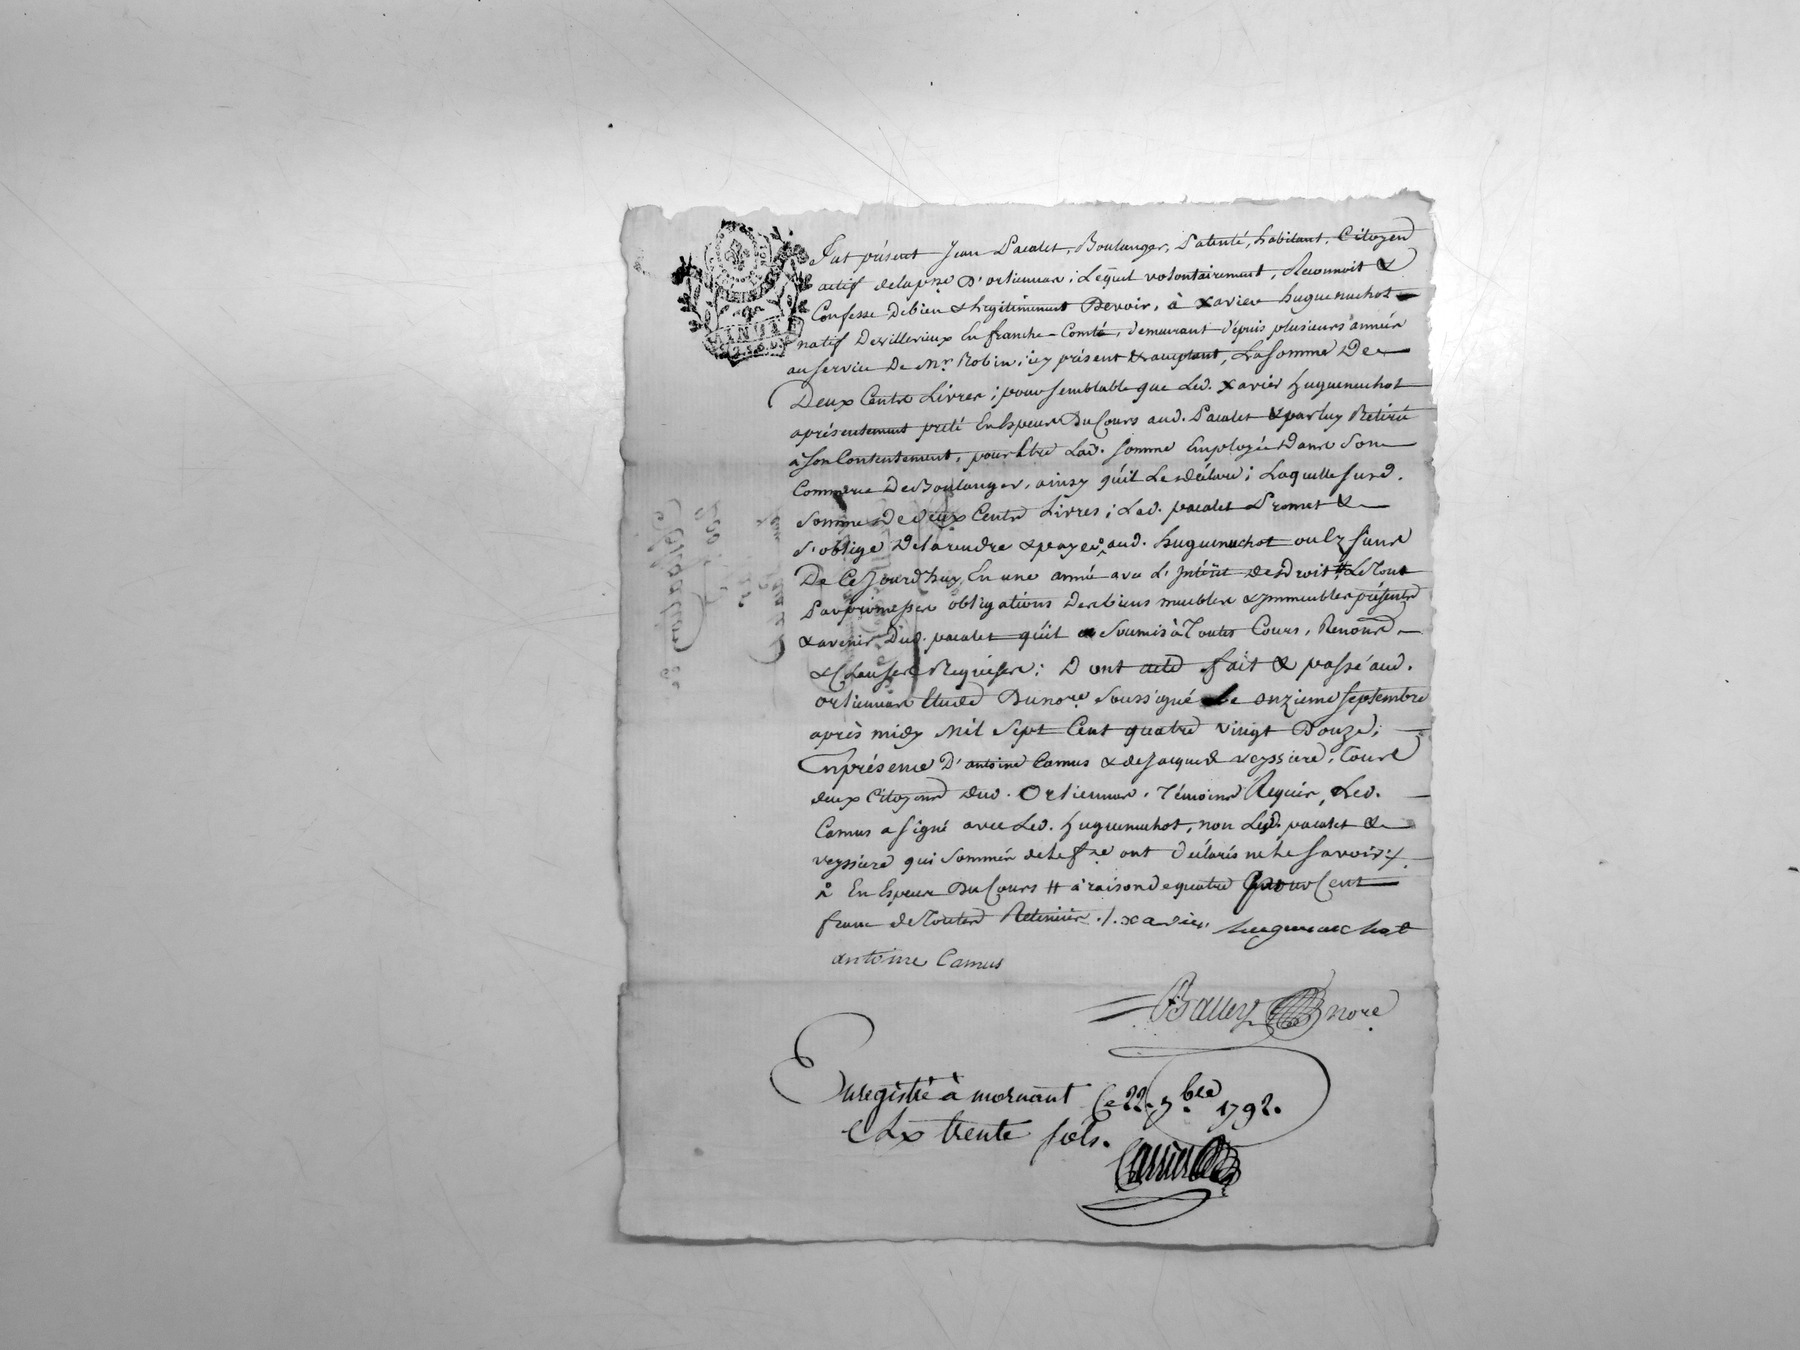 fut présent Jean Pacalet, Boulanger, Patenté, habitant, Citoyen
actif de la p.sse D'orliennas; Lequel volontairement, Reconnoit &
Confesse De bien & legitimement Devoir, à xavier huguenuchot
natif De villevieux En franche-Comté, demeurant dépuis plusieurs année
au service De Mr. Robin, icy présent & acceptant, La somme De
Deux Cents Livres; pour semblable que Led. xavier huguenuchot
a présentement preté En Espeure Du Cours aud. Pacalet & par luy Retiré
à son Contentement, pour Etre Lad. somme Employée Dans Son
Commerce De Boulanger, ainsy qu'il Le déclare; Laquelle susd.
Somme De deux Cents Livres; Led. pacalet Promet &
s'oblige De la rendre & payer aud. huguenuchot ou és siens
De Ce Jourd'huy, En une année avec L'intérêt de droit # Le Tout
Par promesses obligations Des biens meubles & immeubles présents
& avenir Dud. pacalet qu'il a Soumis à Toutes Cours, Renond.
& Clauses Requises: Dont acte fait & passé aud.
orliennas Etude Du nore. Soussigné Le onzieme septembre
après midy Mil Sept Cent quatre vingt Douze;
En présence D'antoine Camus & de Jacques veyssiere, Tous
deux Citoyens dud. Orliennas, Témoins Requis, Led.
Camus a signé avec Led. huguenuchot, non Led. pacalet &
veyssiere qui sommés de le f.re ont déclarés ne le savoir./.
En Espeure Du Cours # à raison de quatre pour Cent
franc de Toutes Retenües ./. xavier huguenuchot
antoine Camus
Balley nore
Enregistré à mornant Ce 22. 7.bre 1792.
trente sols.